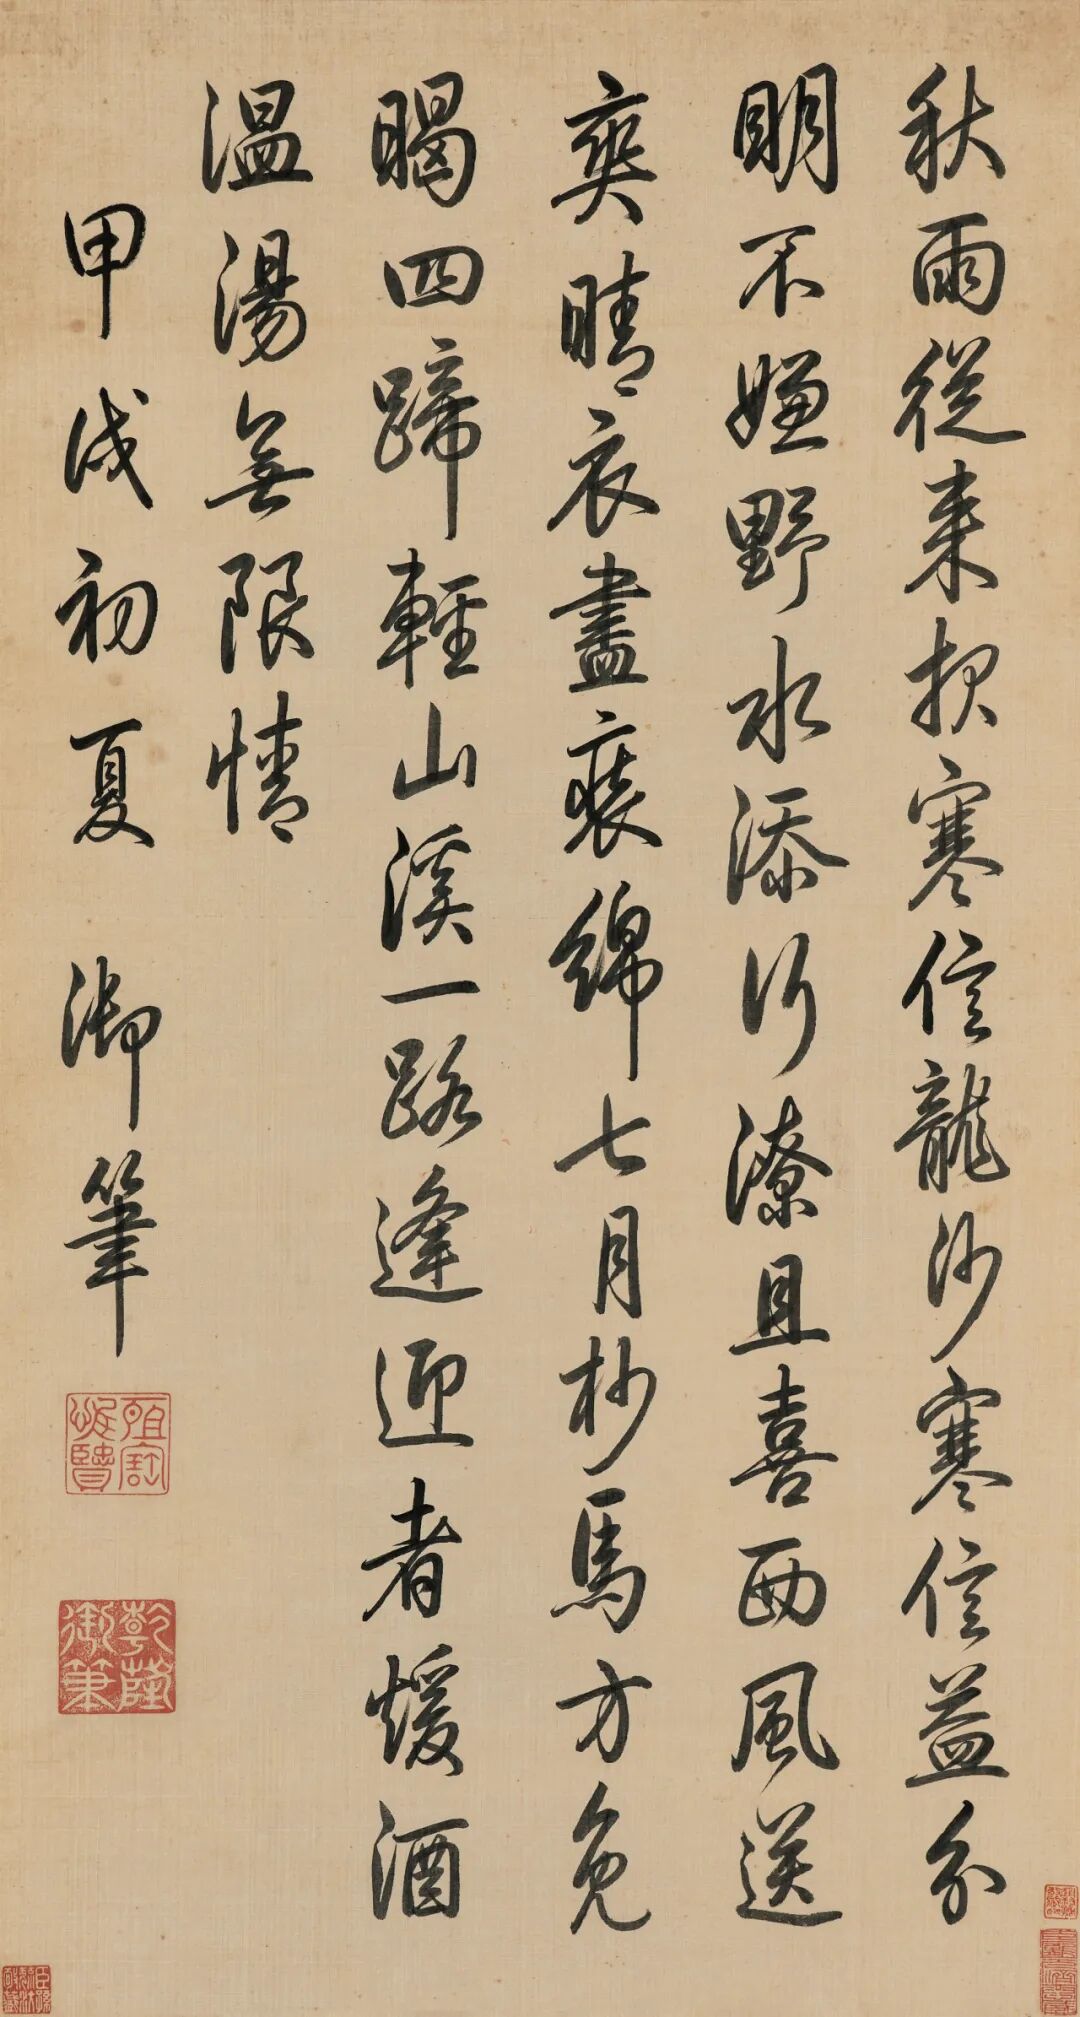 秋雨從来報寒信龍沙寒信益分
明不嫌野水添行潦且喜西風送
爽晴衣盡裝綿七月杪馬方免
暍四蹄輕山溪一路逢迎者煖酒
溫湯無限情
甲戌初夏 御筆
乾隆
御筆